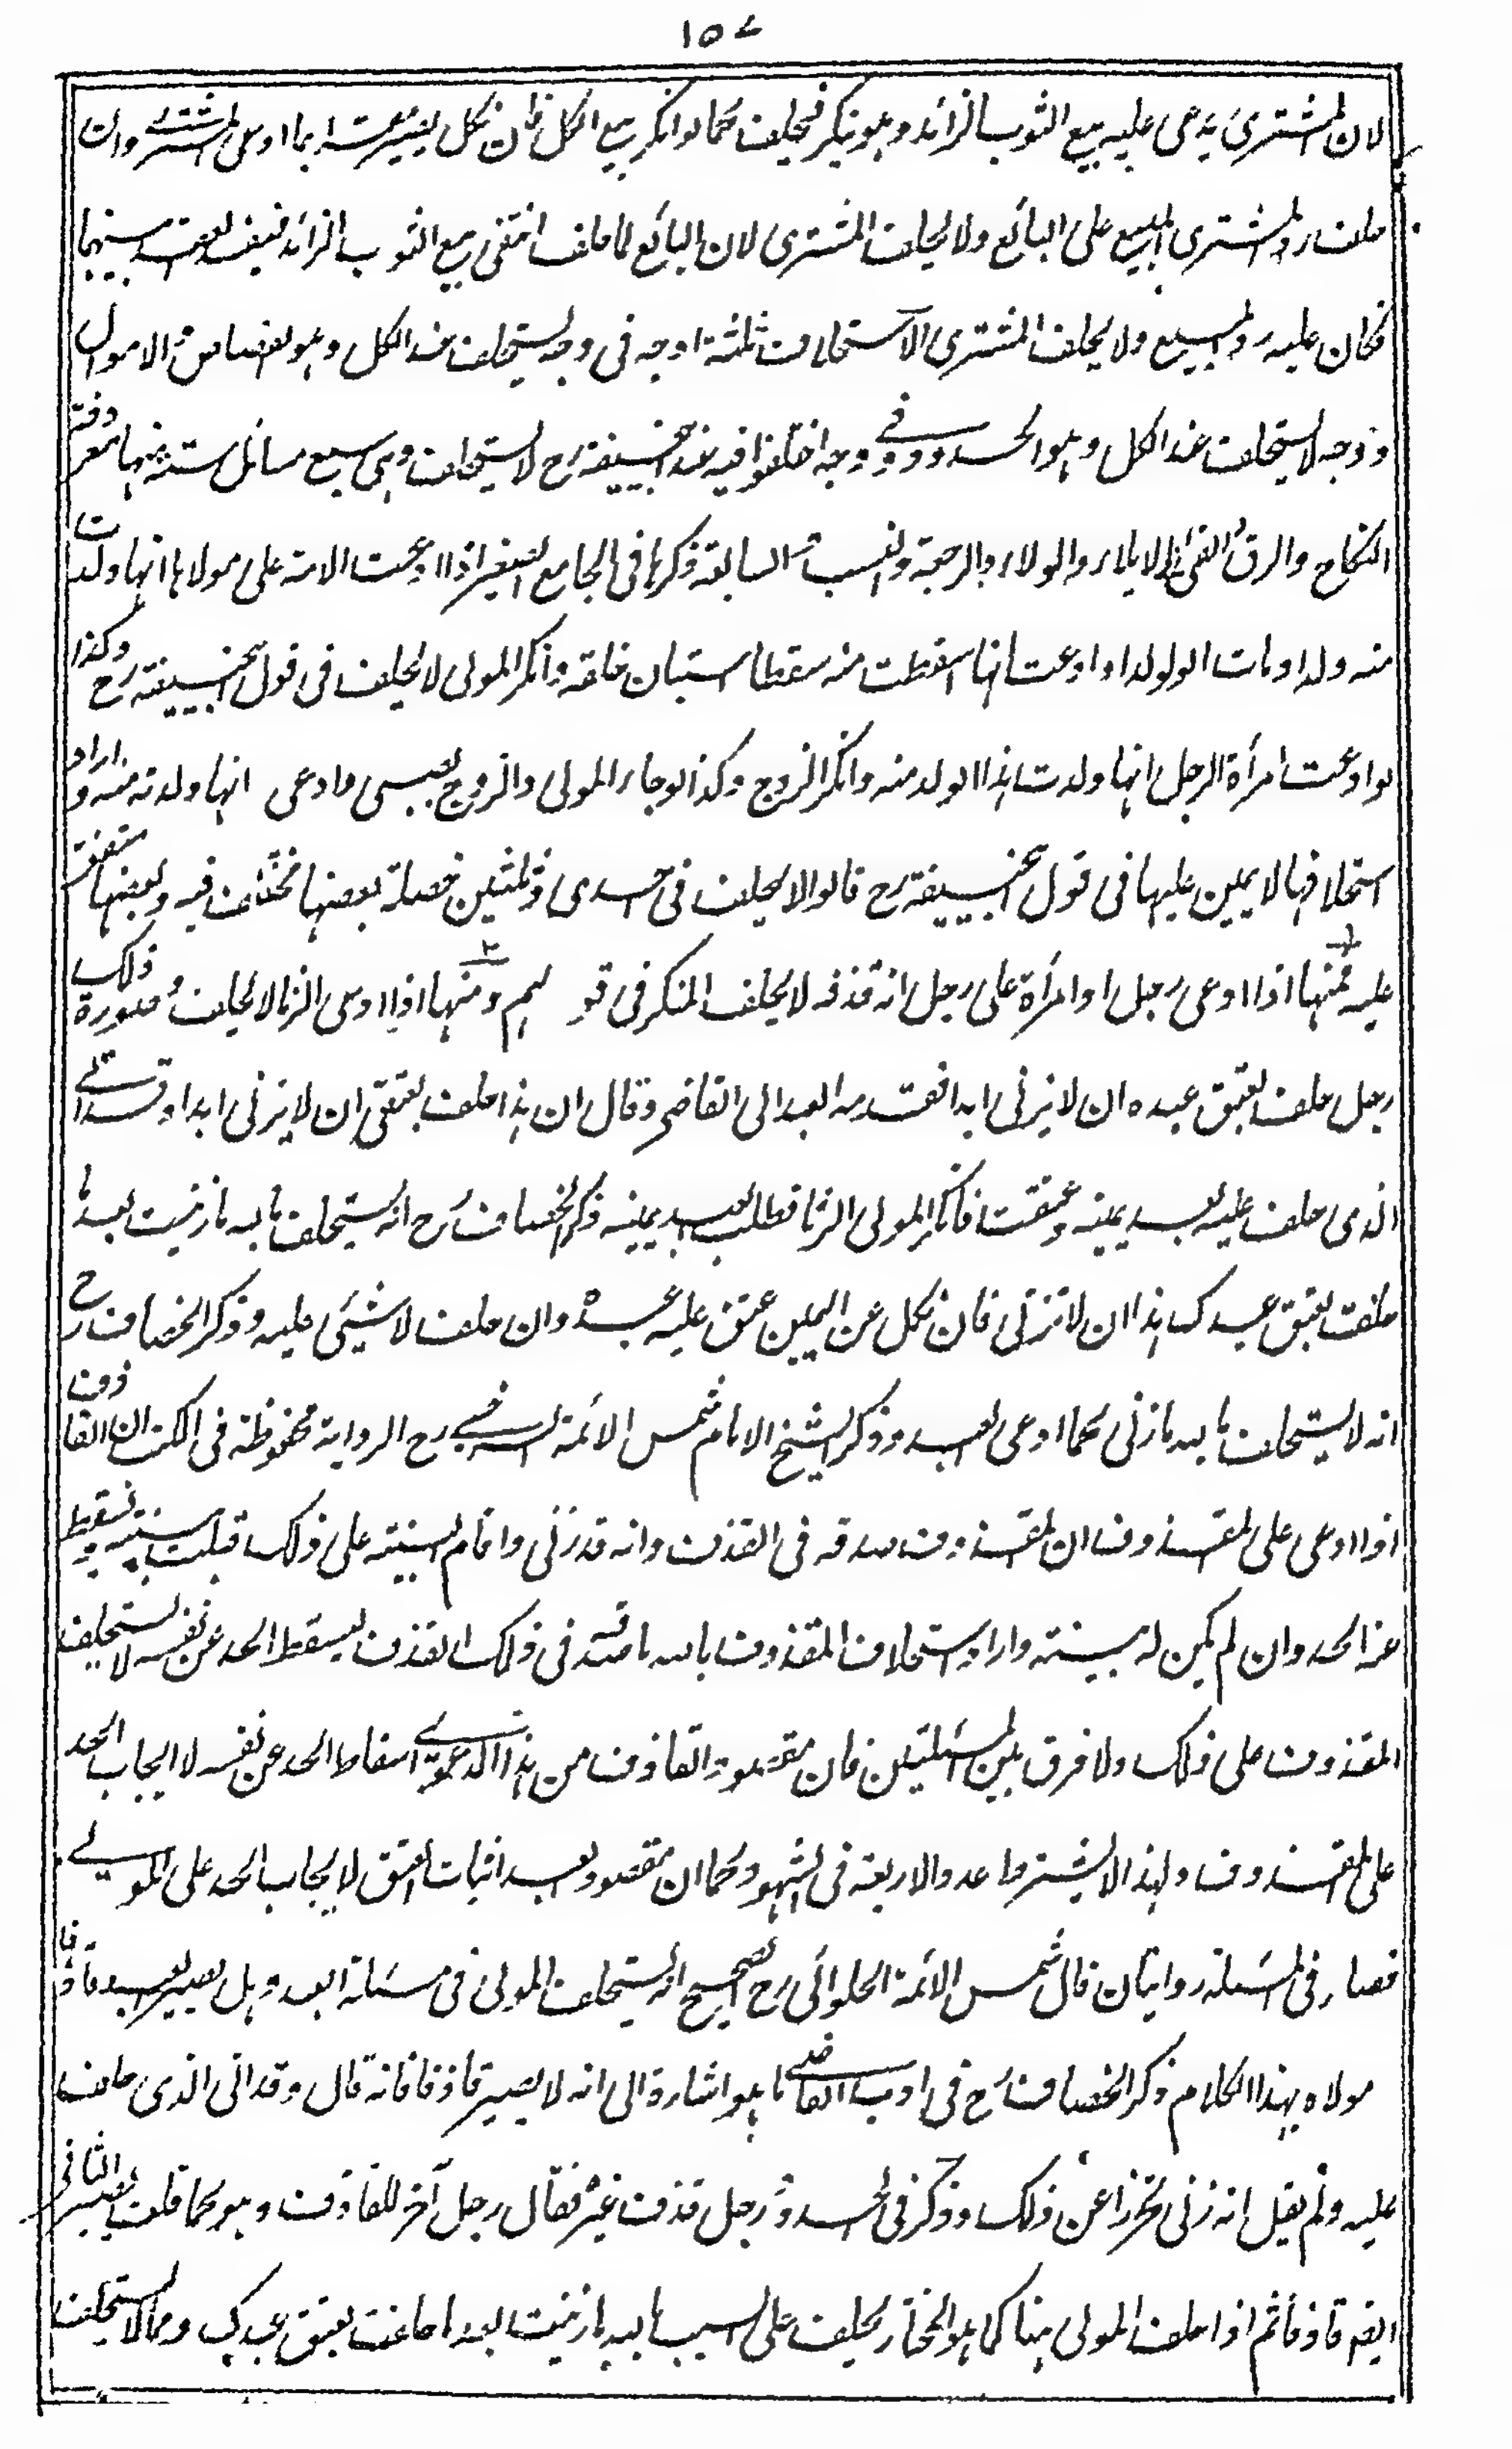 ١٥٧
لان المشترى يدعى عليه بيع الثوب الزائد وهو ينكر فيحلف كما لو انكر بيع الكل فان نكل يصير مقرا بما ادعى المشترى وان
حلف رد المشترى المبيع على البائع ولا يحلف المشترى لان البائع لما حلف انتفى بيع الثوب الزائد فينفسخ العقد بينهما
فكان عليه رد المبيع ولا يحلف المشترى الاستحلاف ثلثة اوجه فى وجه يستحلف عند الكل وهو القصاص و الاموال
و وجه لا يستحلف عند الكل وهو الحدود و فى وجه اختلفوا فيه عند ابيحنيفة رح لا يستحلف وهى سبع مسائل ستة منها معروفة
النكاح والرق والفئ فى الايلاء والولاء والرجعة والنسب و السابعة ذكرها فى الجامع الصغير اذا ادعت الامة على مولاها انها ولدت
منه ولدا ومات الولد او ادعت انها اسقطت منه سقطا استبان خلقه وانكر المولى لا يحلف فى قول ابيحنيفة رح وكذا
لو ادعت امرأة الرجل انها ولدت هذا الولد منه وانكر الزوج وكذا لو جاء المولى والزوج بصبى وادعى انها ولدته منه و اراد
استحلافها لا يمين عليها فى قول ابيحنيفة رح قالوا لا يحلف فى احدى وثلثين خصلة بعضها مختلف فيه وبعضها متفق
عليه فمنها اذا ادعى رجل او امرأة على رجل انه قذفه لا يحلف المنكر فى قولهم ومنها اذا ادعى الزنا لا يحلف و صورة ذلك
رجل حلف بعتق عبده ان لا يزنى ابدا فقدمه العبد الى القاضى وقال ان هذا حلف بعتقى ان لا يزنى ابدا وقد اتى
الذى حلف عليه بعد يمينه وعتقت فانكر المولى الزنا فطلب العبد يمينه ذكر الخصاف رح انه يستحلف بالله ما زنيت بعد ما
حلفت بعتق عبدك هذا ان لا تزنى فان نكل عن اليمين عتق عليه عبده وان حلف لا شيئ عليه وذكر الخصاف رح
انه لا يستحلف بالله ما زنى كما ادعى العبد وذكر الشيخ الامام شمس الائمة السرخسى رح الرواية محفوظة فى الكتب ان القاذف
اذا ادعى على المقذوف ان المقذوف صدقه فى القذف وانه قد زنى واقام البينة على ذلك قبلت بينته ويسقط
عنه الحد وان لم يكن له بينة واراد استحلاف المقذوف بالله ما صدقه فى ذلك القذف ليسقط الحد عن نفسه لا يستحلف
المقذوف على ذلك ولا فرق بين المسئلتين فان مقصود القاذف من هذا الدعوى اسقاط الحد عن نفسه لا ايجاب الحد
على المقذوف ولهذا لا يشترط عدد الاربعة فى الشهود كما ان مقصود العبد اثبات العتق لا ايجاب الحد على المولى
فصار فى المسئلة روايتان قال شمس الائمة الحلوائى رح الصحيح انه يستحلف المولى فى مسئلة العبد وهل يصير العبد قاذفا
مولاه بهذا الكلام ذكر الخصاف رح فى ادب القاضى ما هو اشارة الى انه لا يصير قاذفا فانه قال وقد اتى الذى حلف
عليه ولم يقل انه زنى تحرزا عن ذلك وذكر فى الحدود رجل قذف غيره فقال رجل آخر للقاذف و هو كما قلت يصير الثانى
ايضا قاذفا ثم اذا حلف المولى هنا كما هو المختار يحلف على السبب بالله ما زنيت بعد ما حلفت بعتق عبدك ومما لا يستحلف